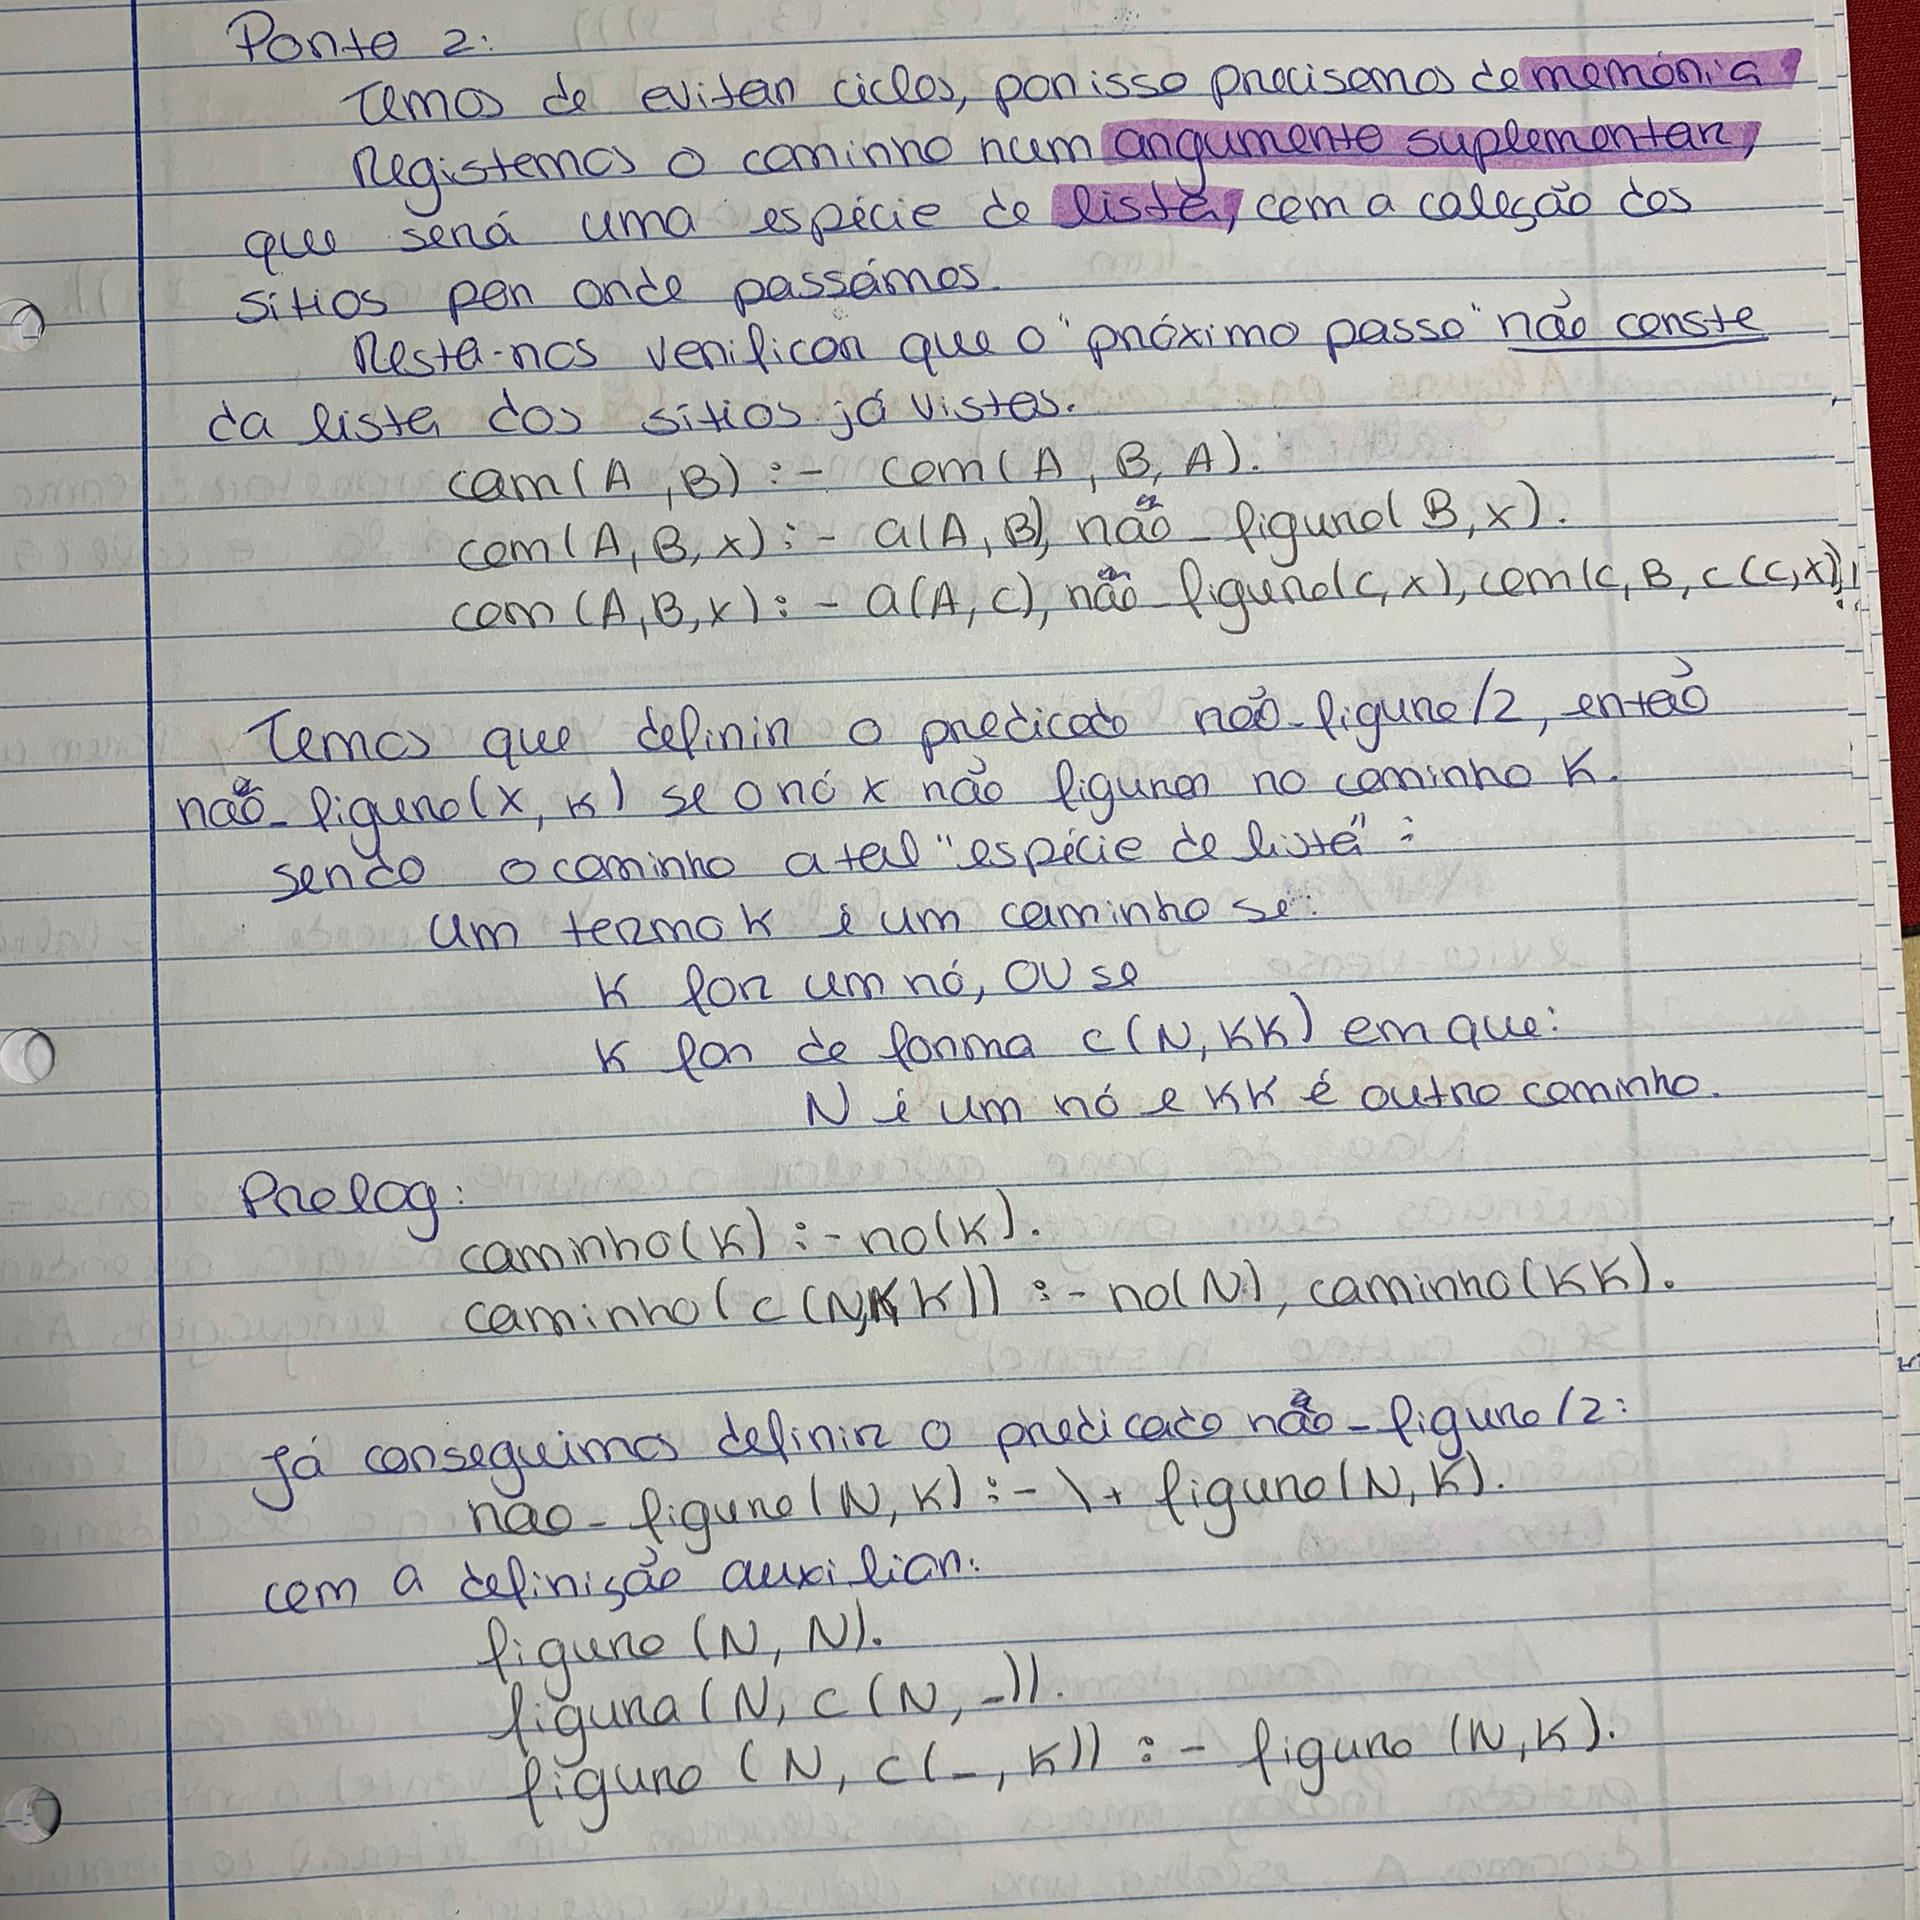 Ponto 2:
Temos de evitar ciclos, por isso precisamos de memória
Registemos o caminho num argumento suplementar,
que será uma espécie de lista, com a coleção dos
sítios por onde passámos.
Resta-nos verificar que o "próximo passo" não conste
da lista dos sítios já vistos.
cam(A,B) :- cam(A, B, A).
cam(A, B, X) :- a(A, B), não_figura(B,X).
cam(A,B,X) :- a(A,C), não_figura(C,X), cam(C, B, c(C,X)).
Temos que definir o predicado não_figura/2, então
não_figura(X, K) se o nó X não figurar no caminho K.
sendo o caminho a tal "espécie de lista":
Um termo K é um caminho se:
K for um nó, OU se
K for da forma c(N, KK) em que:
N é um nó e KK é outro caminho.
Prolog:
caminho(K) :- no(K).
caminho(c(N,KK)) :- no(N), caminho(KK).
Já conseguimos definir o predicado não_figura/2:
nao_figura(N,K) :- \+ figura(N,K).
com a definição auxiliar:
figura(N, N).
figura(N, c(N, _)).
figura(N, c(_, K)) :- figura(N,K).